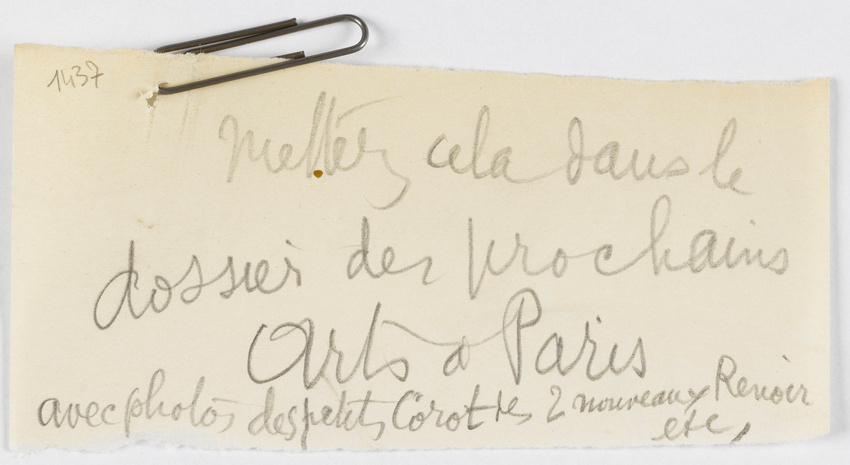 1437
Mettez cela dans le
dossier des prochains
Arts à Paris
avec photos des petits Corot les 2 nouveaux Renoir
etc,